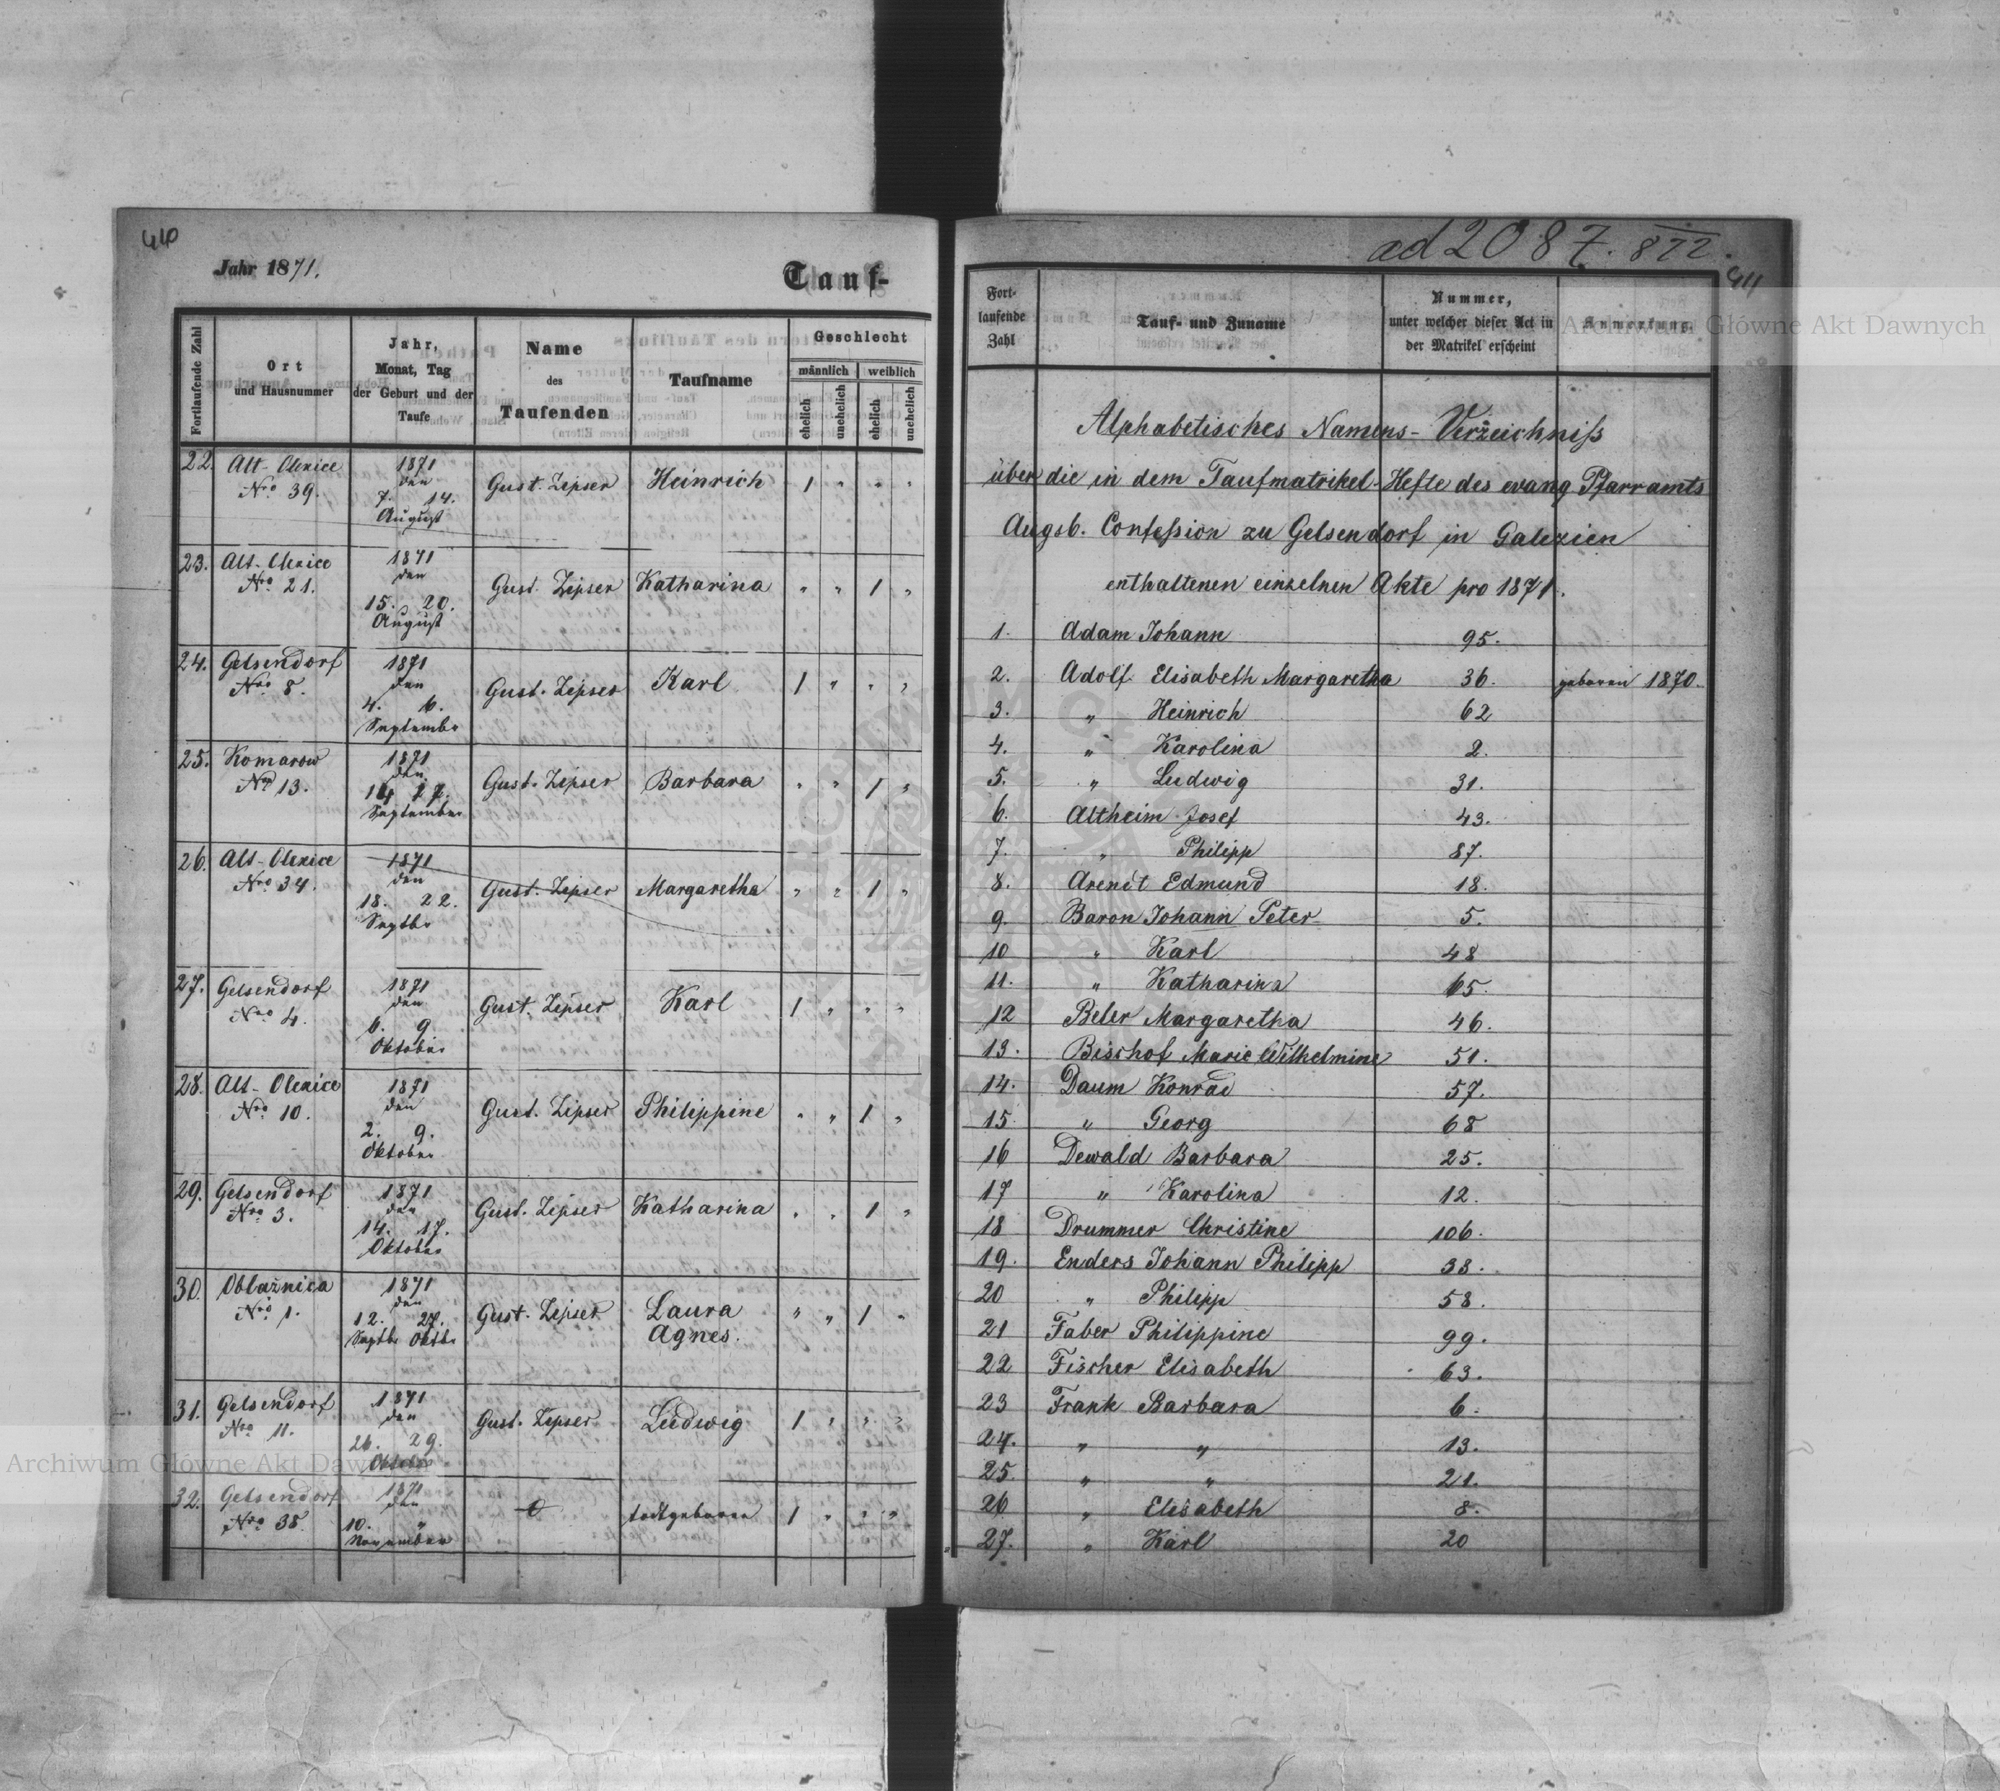 440
Jahr 1871.
Tauf-
Fortlaufende Zahl
Ort
und Hausnummer
Jahr,
Monat, Tag
der Geburt und der
Taufe
Name
des
Taufenden
Taufname
Geschlecht
männlich weiblich
ehelich unehelich ehelich unehelich
22. Alt-Olexice Nro 39. 1871 den 7. 14. August Gust. Zipser Heinrich 1 " " "
23. Alt-Olexice Nro 21. 1871 den 15. 20. August Gust. Zipser Katharina " " 1 "
24. Gelsendorf Nro 8. 1871 den 4. 6. Septembr Gust. Zipser Karl 1 " " "
25. Komarow Nro 13. 1871 den 14 17. September Gust. Zipser Barbara " " 1 "
26. Alt-Olexice Nro 34. 1871 den 18. 22. Septbr Gust. Zipser Margaretha " " 1 "
27. Gelsendorf Nro 4. 1871 den 6. 9. Oktober Gust. Zipser Karl 1 " " "
28. Alt-Olexice Nro 10. 1871 den 2. 9. Oktober Gust. Zipser Philippine " " 1 "
29. Gelsendorf Nro 3. 1871 den 14. 17. Oktober Gust. Zipser Katharina " " 1 "
30. Oblaznica Nro 1. 1871 den 12. 27. Septbr Oktbr Gust. Zipser Laura Agnes. " " 1 "
31. Gelsendorf Nro 11. 1871 den 26. 29. Oktober Gust. Zipser Ludwig 1 " " "
32. Gelsendorf Nro 38. 1871 den 10. " November 0 todtgeboren 1 " " "
ad 2087. 872.
441
Fort-
laufende
Zahl
Tauf- und Zuname
Nummer,
unter welcher dieser Act in
der Matrikel erscheint
Anmerkung.
Alphabetisches Namens-Verzeichniß
über die in dem Taufmatrikel-Hefte des evang Pfarramts
Augsb. Confession zu Gelsendorf in Galizien
enthaltenen einzelnen Akte pro 1871.
1. Adam Johann 95.
2. Adolf Elisabeth Margaretha 36. geboren 1870.
3. " Heinrich 62
4. " Karolina 2.
5. " Ludwig 31.
6. Altheim Josef 43.
7. " Philipp 87.
8. Arendt Edmund 18.
9. Baron Johann Peter 5.
10 " Karl 48
11. " Katharina 65.
12 Beler Margaretha 46.
13. Bischof Marie Wilhelmine 51.
14. Daum Konrad 57.
15 " Georg 68
16 Dewald Barbara 25.
17 " Karolina 12.
18 Drummer Christine 106.
19. Enders Johann Philipp 38.
20 " Philipp 58.
21 Faber Philippine 99.
22 Fischer Elisabeth 63.
23 Frank Barbara 6.
24. " " 13.
25. " " 21.
26 " Elisabeth 8.
27. " Karl 20
Archiwum Główne Akt Dawnych
Archiwum Główne Akt Dawnych